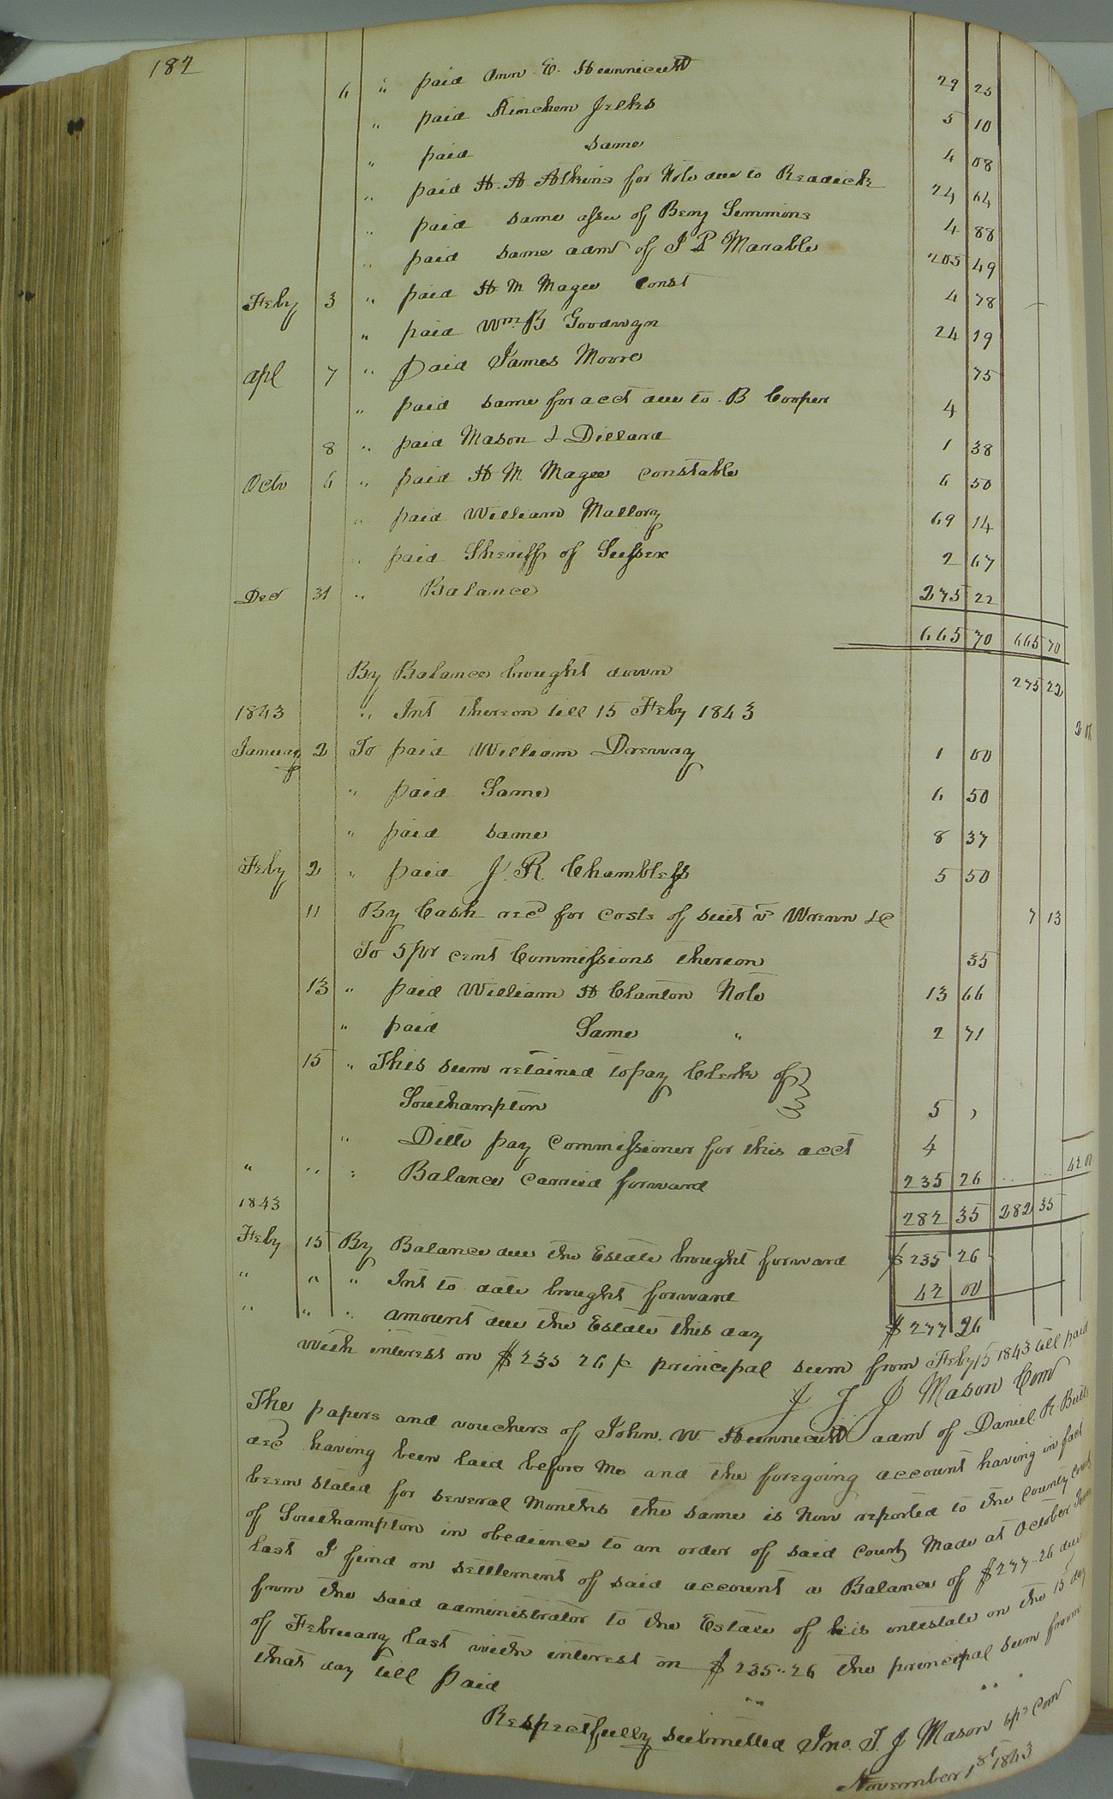 182
6 " paid Ann E. Hunnicutt 29 25
" paid Kinchen Jelks 5 10
" paid same 4 08
" paid H. A. Atkins for Note due to Readick 24 64
" paid same assee of Benj Simmons 4 88
" paid same adm of J P Marable 205 49
Feby 3 " paid H M Magee Const 4 78
" paid Wm B Goodwyn 24 19
apl 7 " paid James Moore 75
" paid same for acct due to B Cooper 4
8 " paid Mason & Dillard 1 38
Octo 6 " paid H M Magee constable 6 50
" paid William Mallory 69 14
" paid Sheriff of Sussex 2 67
Dec 31 " Balance 275 22
665 70 665 70
By Balance brought down 275 22
1843 " Int thereon till 15 Feby 1843
January 2 To paid William Drewray 1 00
" paid Same 6 50
" paid same 8 37
Feby 2 " paid J. R. Chambless 5 50
11 By Cash recd for costs of suit v Wrenn &c 7 13
To 5 pr cent Commissions thereon 35
13 " paid William H Clanton Note 13 66
" paid Same " 2 71
15 " This sum retained to pay Clerk of
Southampton 5 "
" Ditto pay Commissioner for this acct 4
" " " Balance carried forward 235 26 " " 42 0
1843 282 35 282 35
Feby 15 By Balance due the Estate brought forward $ 235 26
" " " Int to date brought forward 42 00
" " " amount due the Estate this day $ 277 26
with interest on $235 26 pr principal sum from Feby 15 1843 till paid
J T J Mason Com
The papers and vouchers of John. W Hunnicutt adm of Daniel R. Butts
decd having been laid before Me and the foregoing account having in fact
been stated for several Months the same is Now reported to the County Court
of Southampton in obedience to an order of said Court Made at October Term
last I find on settlement of said account a Balance of $277.26 due
from the said administrator to the Estate of his intestate on the 15 day
of February last with interest on $235.26 the principal sum from
that day till Paid " "
Respectfully submitted Jno. T. J Mason spl Com
November 1st 1843